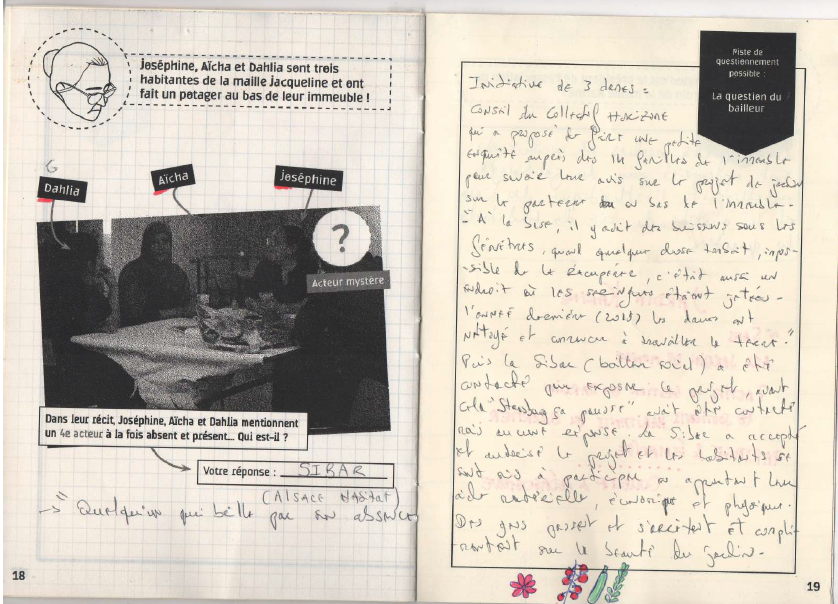 Joséphine, Aïcha et Dahlia sont trois
habitantes de la maille Jacqueline et ont
fait un potager au bas de leur immeuble !
G
Dahlia
Aïcha
Joséphine
?
Acteur mystère
Dans leur récit, Joséphine, Aïcha et Dahlia mentionnent
un 4e acteur à la fois absent et présent... Qui est-il ?
Votre réponse : SIBAR
(Alsace Habitat)
-> "Quelqu'un qui brille par son absence
18
Piste de
questionnement
possible :
La question du
bailleur
Initiative de 3 dames :
Conseil du Collectif Horizome
qui a proposé de faire une petite
enquête auprès des 14 familles de l'immeuble
pour savoir leur avis sur le projet de jardin
sur le parterre au bas de l'immeuble.
"À la base, il y avait des buissons sous les
fenêtres, quand quelque chose tombait, impos-
-sible de le récupérer, c'était aussi un
endroit où les seringues étaient jetées.
l'année dernière (2018) les dames ont
nettoyé et commencé à travailler la terre."
Puis la Sibar (bailleur social) a été
contacté pour exposer le projet, avant
cela "Strasbourg ça pousse" avait été contacté
mais aucune réponse. La Sibar a accepté
et autorisé le projet et les habitants se
sont mis à participer en apportant leur
aide matérielle, économique et physique.
Des gens passent et s'arrêtent et compli-
-mentent sur la beauté du jardin.
19